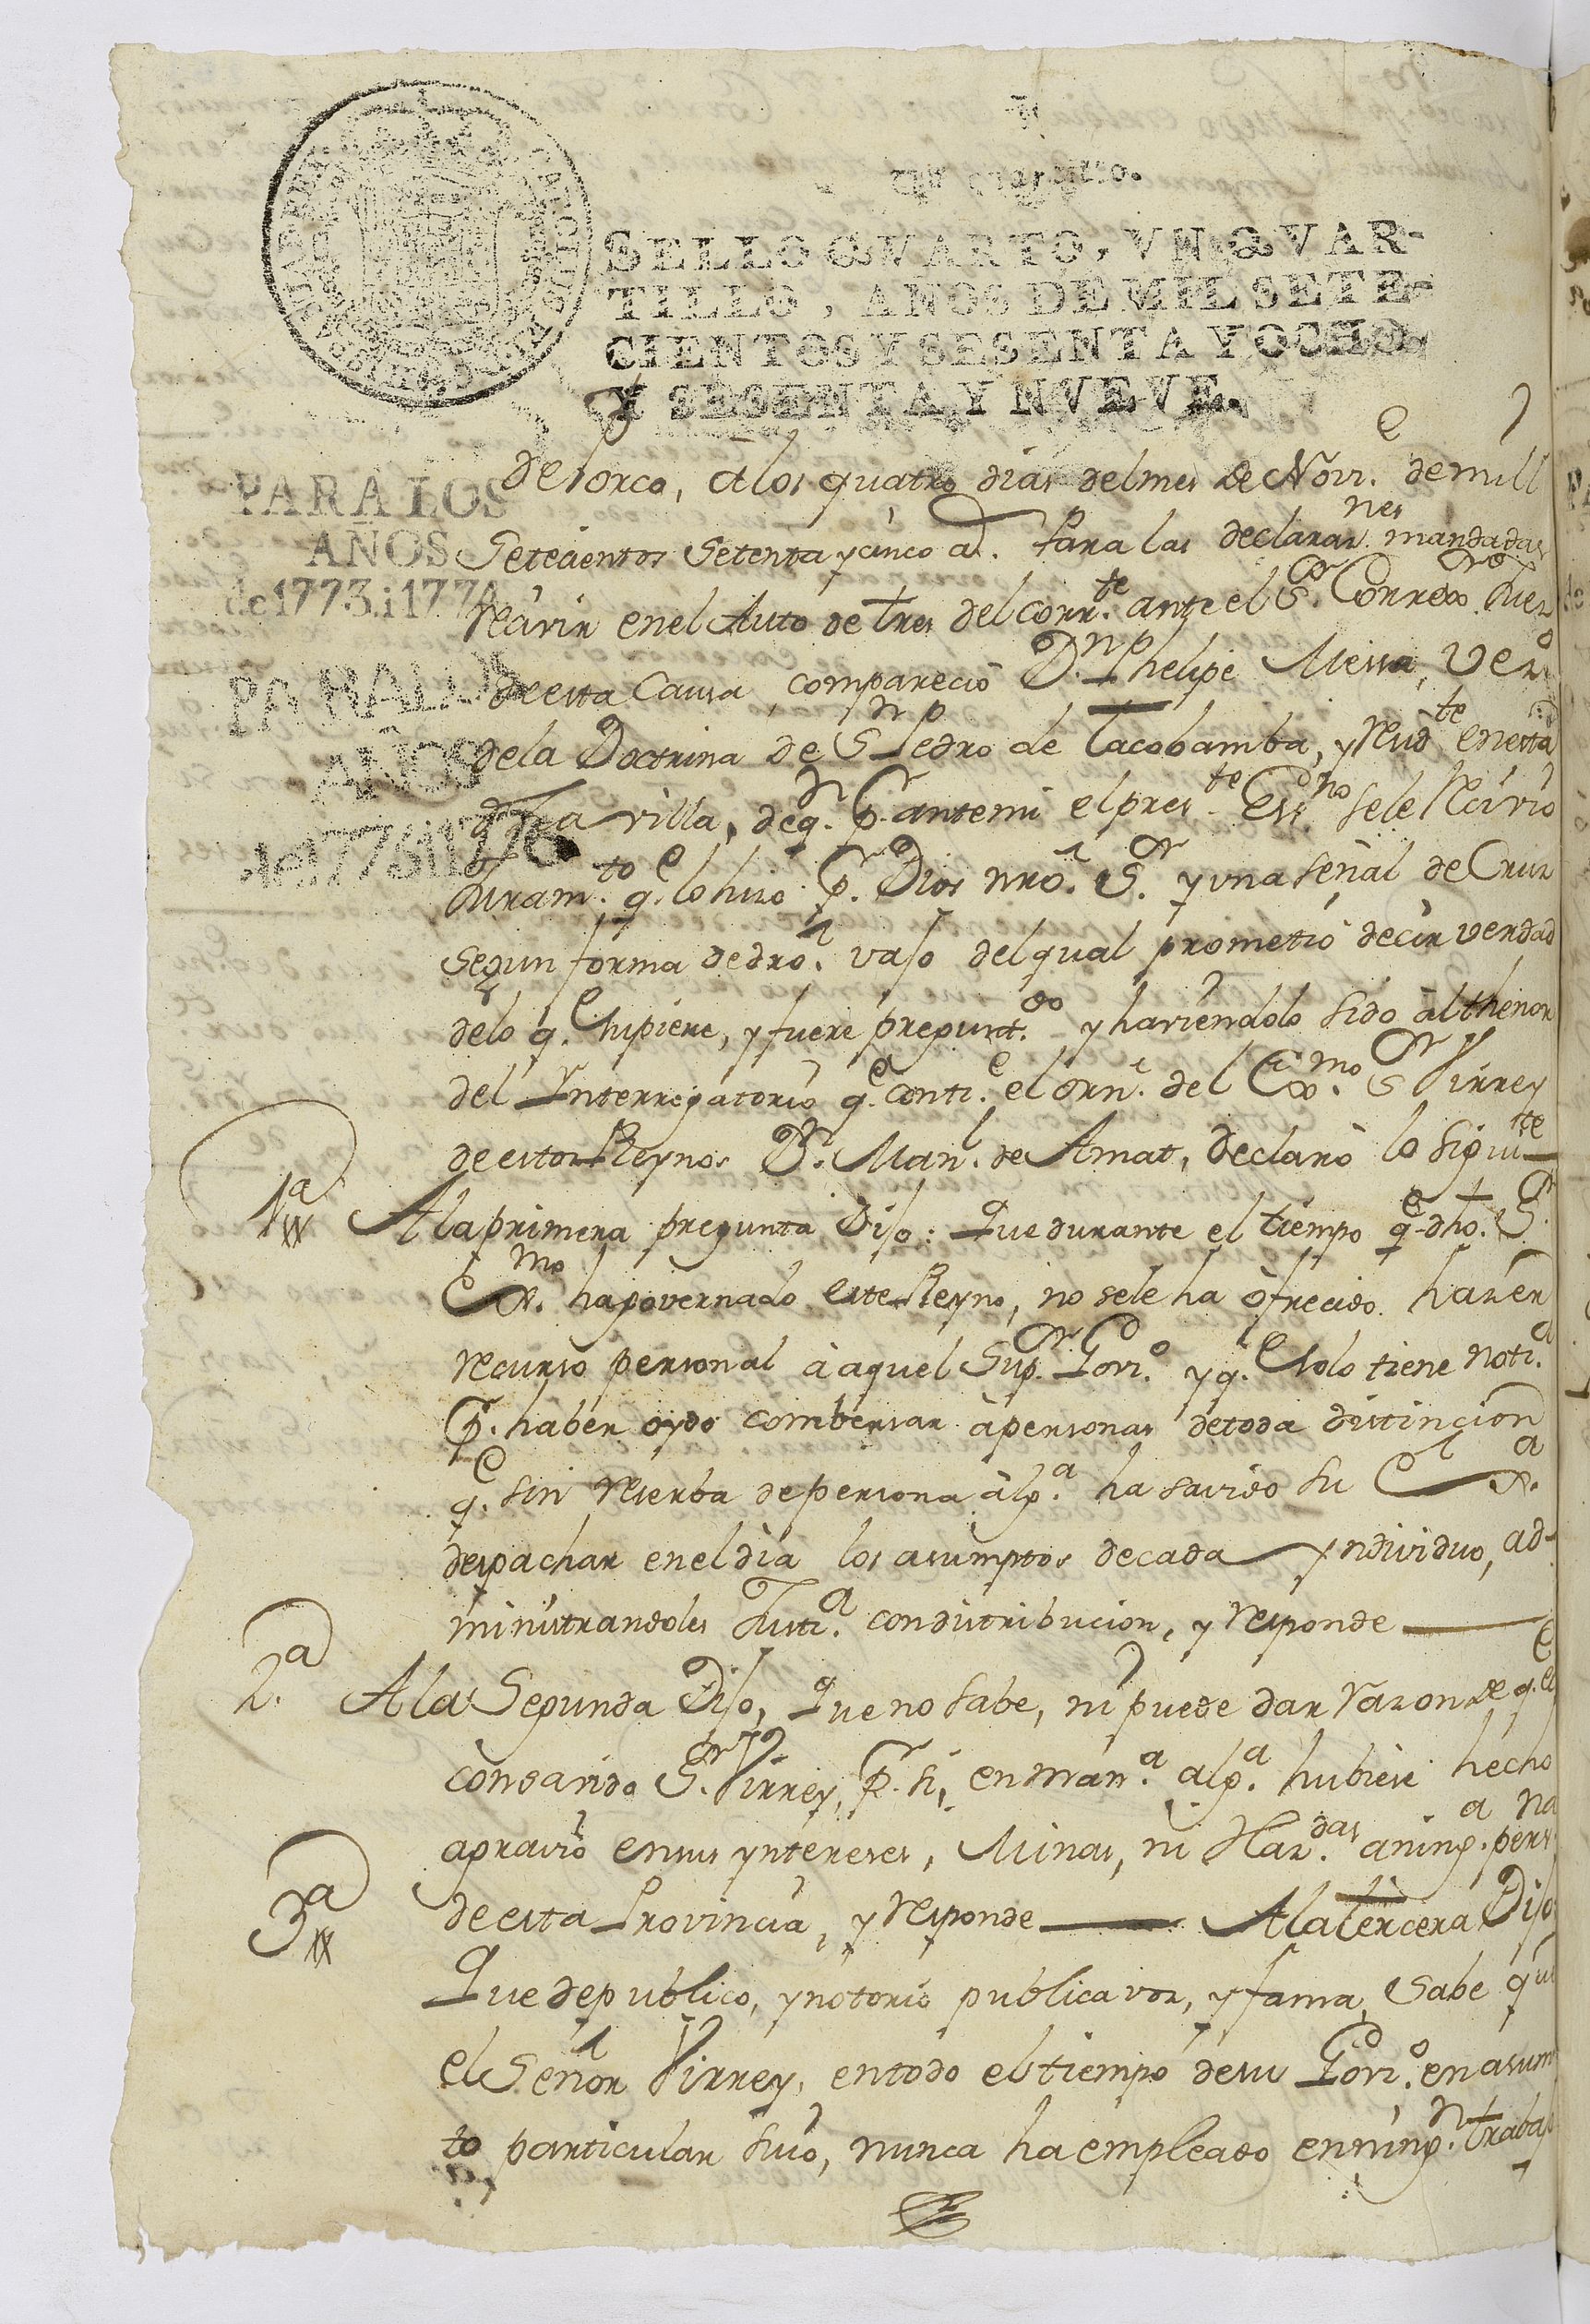 Un quartillo.
SELLO QVARTO, VN QVAR-
TILLO, AÑOS DE MIL SETE-
CIENTOS Y SESENTA Y OCHO
Y SESENTA Y NVEVE.
PARA LOS
AÑOS
de 1773. i 1774
PARA LOS
AÑOS
de 1775 i 1776
de Porco, á los quatro dias del mes de Novi.e de mill
Setecientos Setenta y cinco a.s Para las declaraz.nes mandadas
recivir en el Auto de tres del corr.te ante el S.or Correx.or Juez
de esta Causa, compareció D.n Phelipe Messa, Vez.o
de la Doctrina de S.n Pedro de Tacobamba, y resid.te en esta
dha villa, de q.n p.r ante mi el pres.te Ess.no se le recivio
Juram.to q.e lo hizo p.r Dios nrô. S.r y una señal de Cruz
segun forma de dro. vajo del qual prometió decir verdad
de lo q.e supiere, y fuere pregunt.do y haviendolo sido àl thenor
del Interrogatorio q.e conti.e el orn. del Ex.mo S.r Virrey
de estos Reynos D.n Man.l de Amat, declaró lo siguie.te
1.a A la primera pregunta Dijo: Que durante el tiempo q.e dho. S.r
Ex.mo ha governado este Reyno, no sele ha ófrecido hazer
recurso personal à aquel Sup.r Govi.o y q.e solo tiene noti.a
p.r haber oydo combersar à personas de toda distincion
q.e sin reserba de persona àlg.a ha savido su Ex.a
despachar en el dia los asumptos de cada yndividuo, ad-
ministrandoles Justi.a con distribucion, y responde
2.a A la Segunda Dijo, Que no sabe, ni puede dar razon de q.e el
consavido S.r Virrey, p.r si, en man.a alg.a hubiese hecho
agravio en sus yntereses, Minas, ni Haz.das a ning.a pers.na
de esta Provincia, y responde
3.a A la tercera Dijo,
Que de publico, y notorio publica voz, y fama, sabe que
el Señor Virrey, en todo el tiempo de su Govi.o en asum
to particular suio, nunca ha empleado en ning.n trabajo